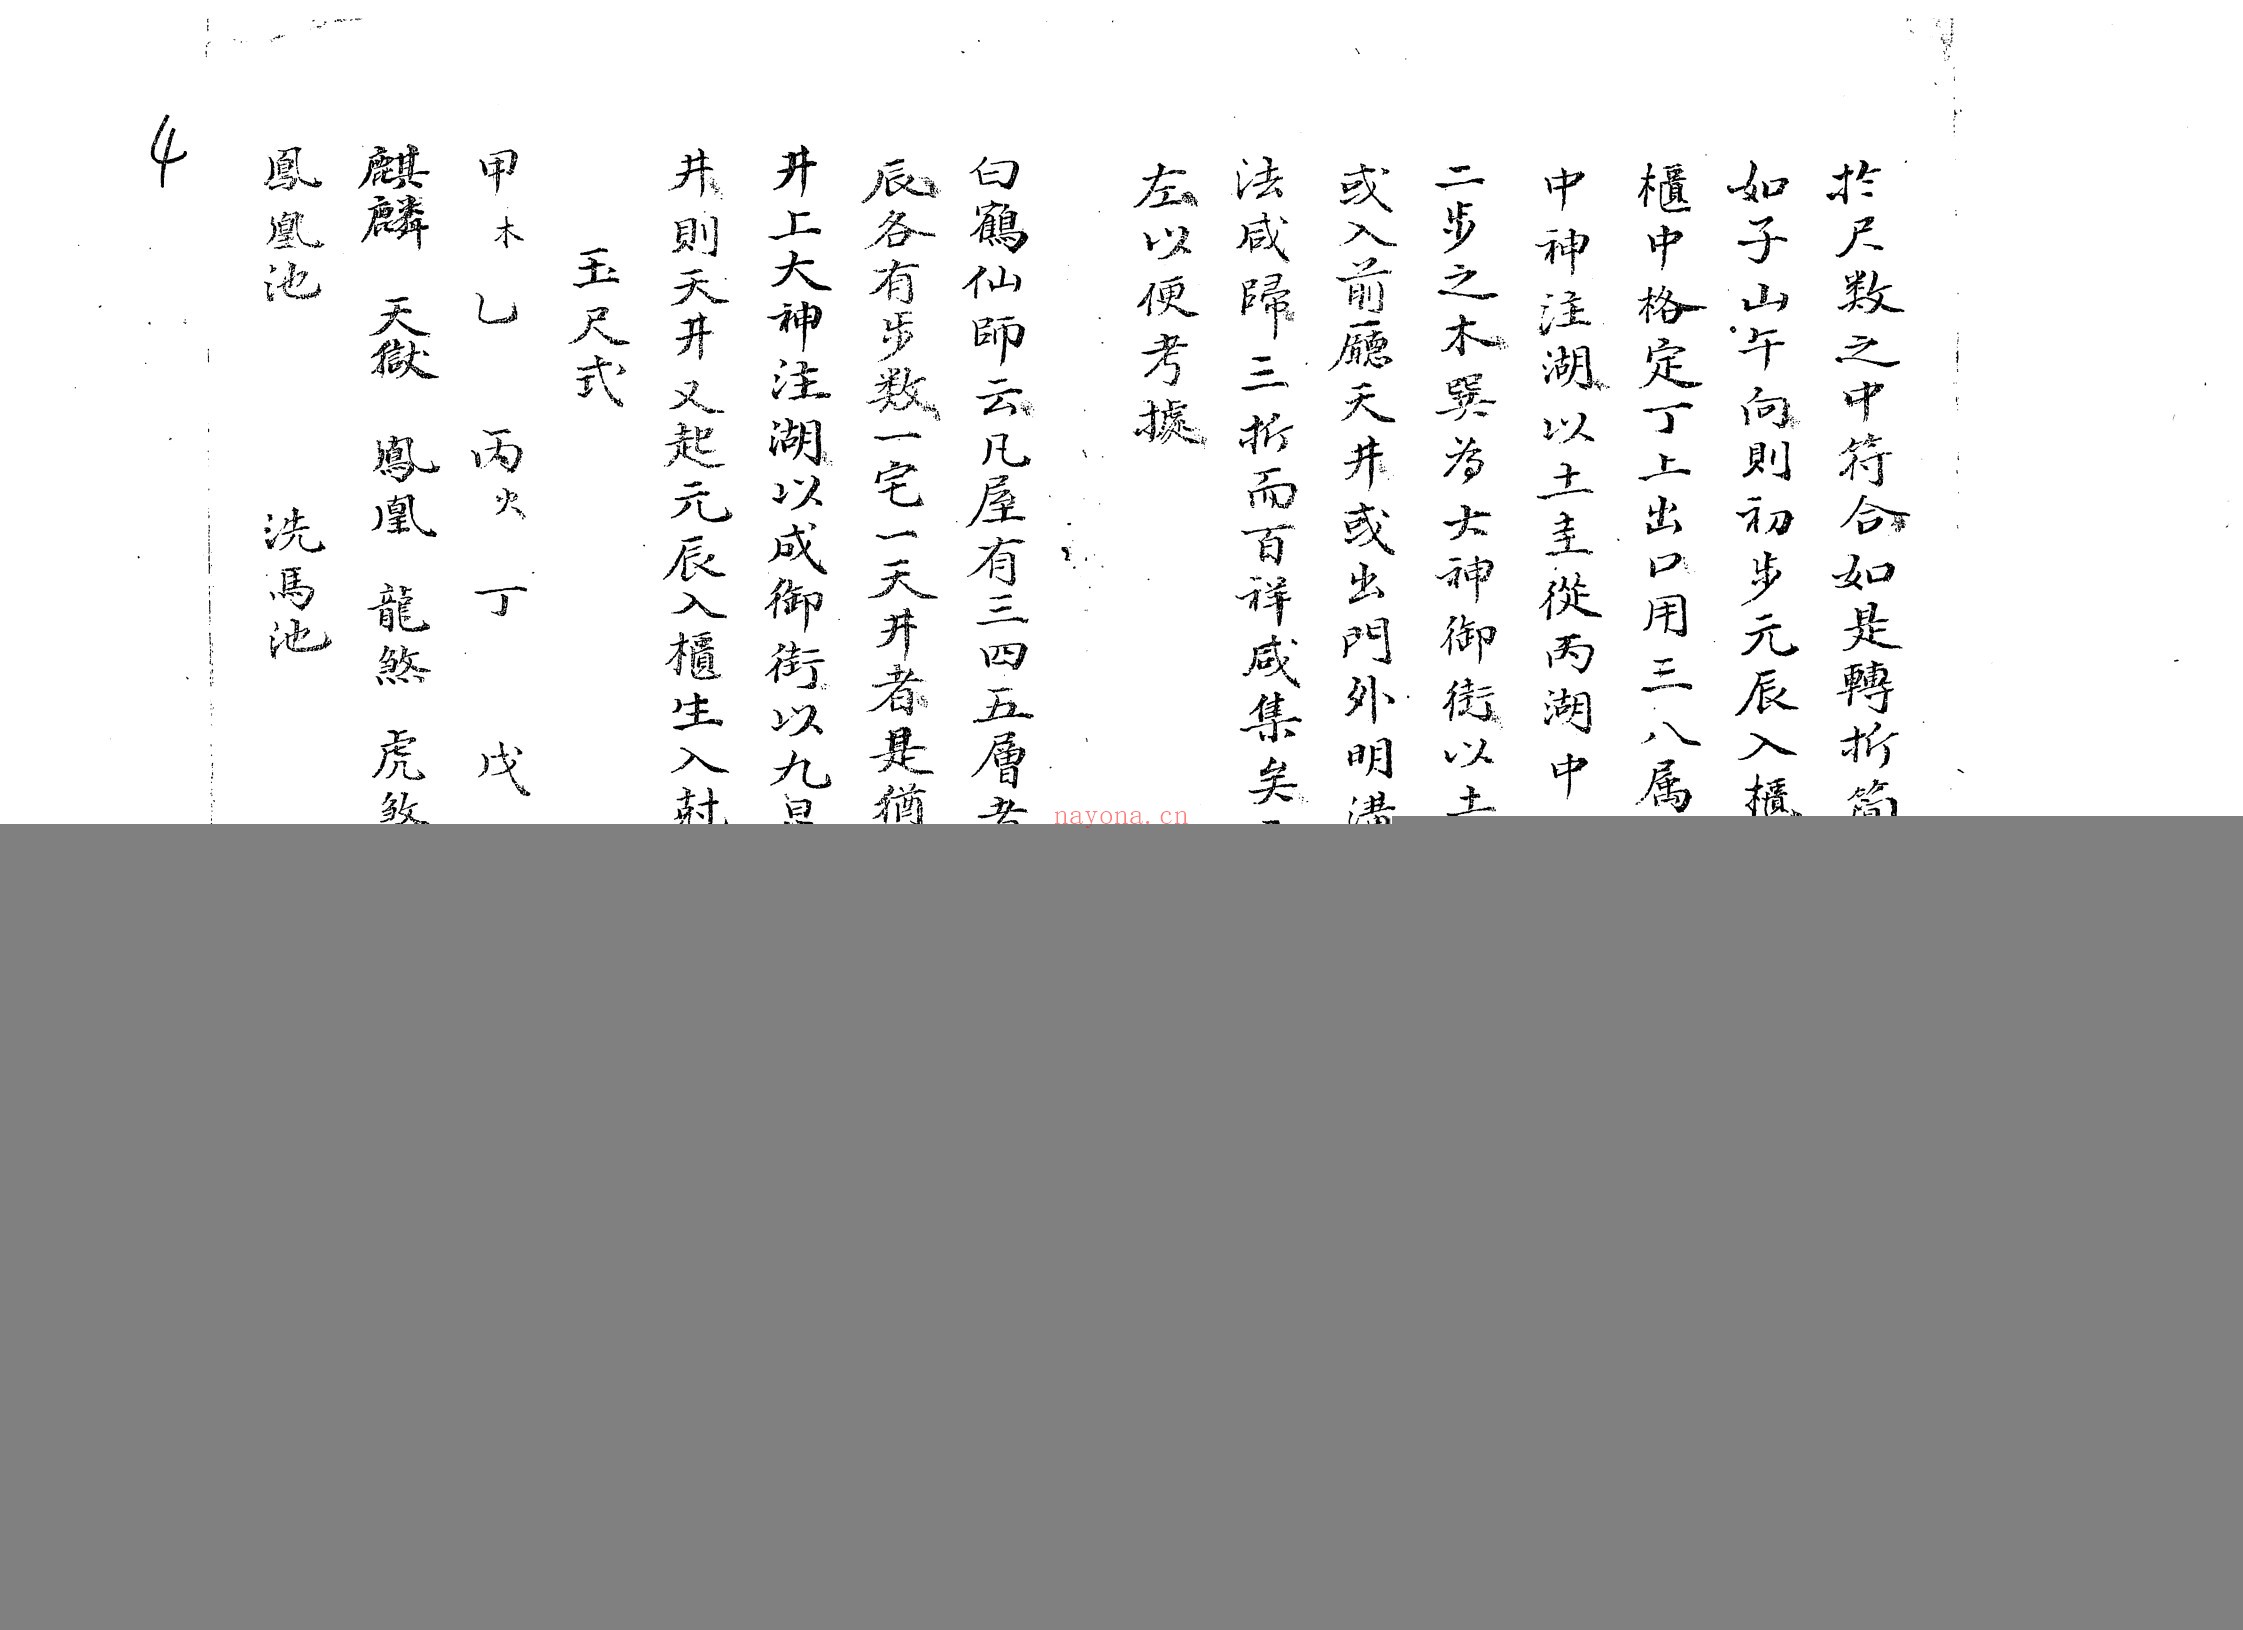 於尺数之中符合如是轉折简
如子山午向則初步元辰入櫃
櫃中格定丁上出口用三八属
中神注湖以土圭從丙湖中
二步之木巽为大神御街以土
或入前廳天井或出門外明溝
法咸歸三折而百祥咸集矣
左以便考據
白鶴仙師云凡屋有三四五層者
辰各有步数一宅一天井者是猶
井上大神注湖以成御街以九
井則天井又起元辰入櫃生入尅
玉尺式
甲木 乙 丙火 丁 戊
麒麟 天獄 鳳凰 龍煞 虎煞
鳳凰池 洗馬池
4
nayona.cn